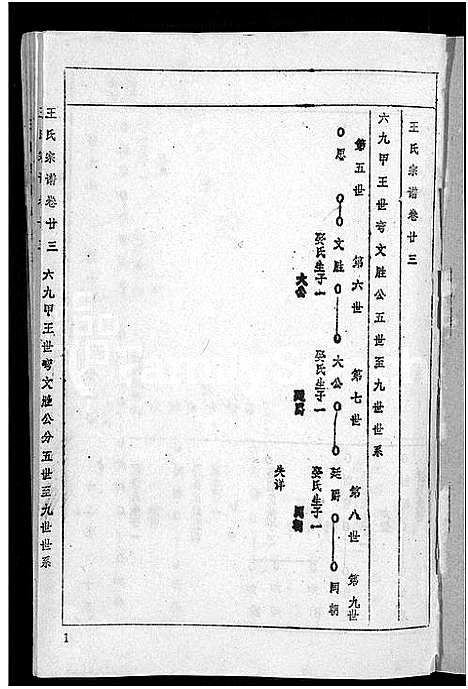 王氏宗谱卷廿三
六九甲王世穹文胜公五世至九世世系
第五世 第六世 第七世 第八世 第九世
思 文胜 大公 廷爵 同朝
娶氏生子一 娶氏生子一 娶氏生子一
大公 廷爵 同朝
失详
王氏宗谱卷廿三 六九甲王世穹文胜公分五世至九世世系
1